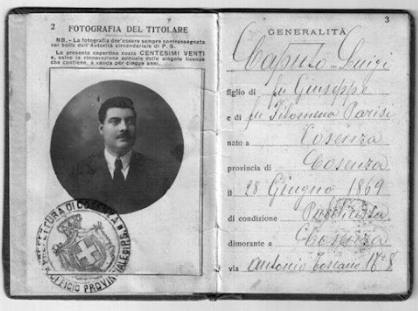 2
FOTOGRAFIA DEL TITOLARE
NB. - La fotografia dev'essere sempre contrassegnata
col bollo dell'Autorità circondariale di P. S.
La presente copertina costa CENTESIMI VENTI
e, salva la rinnovazione annuale delle singole tessere
che contiene, è valida per cinque anni.
PREFETTURA DI COSENZA
UFFICIO PROVINCIALE
3
GENERALITÀ
Caputo Luigi
figlio di fu Giuseppe
e di fu Filomena Parise
nato a Cosenza
provincia di Cosenza
il 28 Giugno 1869
di condizione
dimorante a Cosenza
via Antonio Toscano N° 8